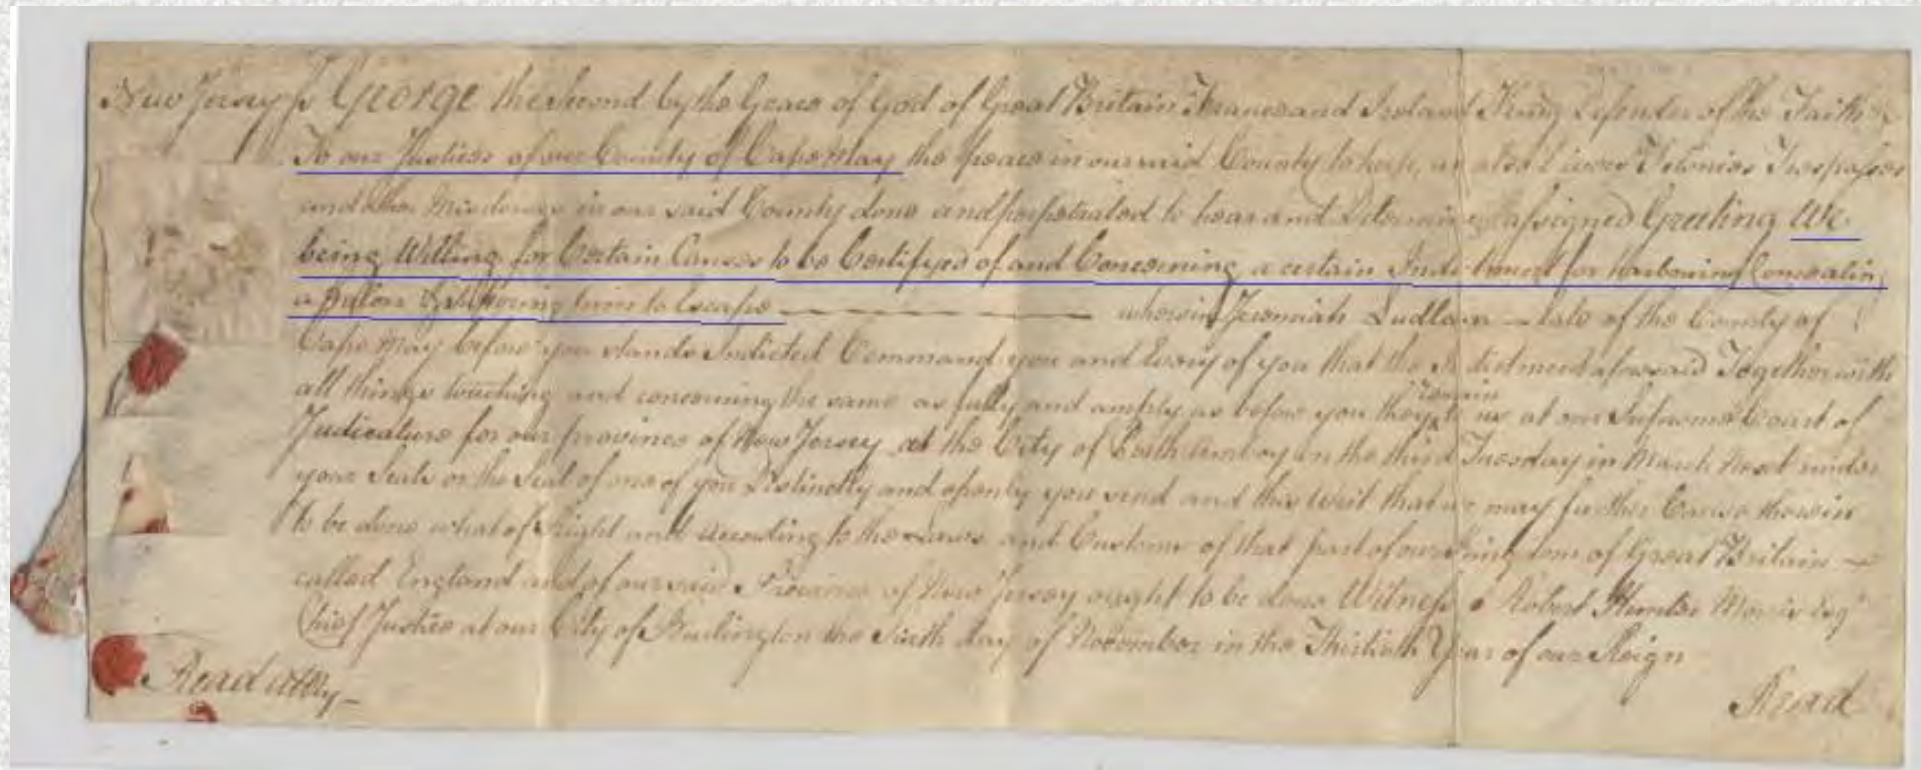 New Jersey ss George the Second by the Grace of God of Great Britain France and Ireland King Defender of the Faith &c
To our Justices of our County of Cape May the peace in our said County to keep, as also Divers Felonies Trespasses
and other Misdemrs in our said County done and perpetrated to hear and Determine assigned Greeting We
being Willing for Certain Causes to be Certifyed of and Concerning a certain Indictment for harbouring Concealing
a Felon & him to Escape — wherein Jeremiah Ludlam — late of the County of
Cape May before you stands Indicted Command you and Every of you that the Indictment aforesaid Together with
all things touching and concerning the same as fully and amply as before you they remain to us at our Supreme Court of
Judicature for our province of New Jersey at the City of Perth Amboy on the third Tuesday in March Next under
your Seals or the Seal of one of you Distinctly and openly you send and this Writ that we may further Cause therein
to be done what of right and according to the Laws and Customs of that part of our Kingdom of Great Britain —
called England and of our said Province of New Jersey ought to be done Witness Robert Hunter Morris Esqr
Chief Justice at our City of Burlington the Sixth day of November in the Thirtieth Year of our Reign
Read atty —
Read